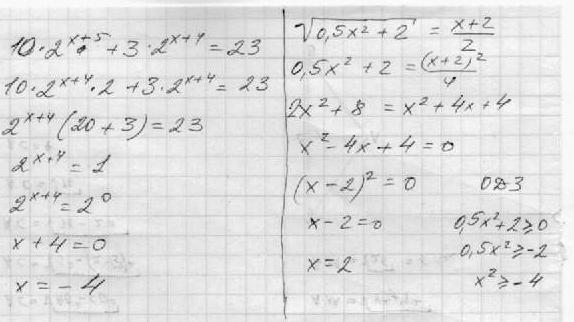 10·2^(x+5) + 3·2^(x+4) = 23
10·2^(x+4)·2 + 3·2^(x+4) = 23
2^(x+4)(20+3) = 23
2^(x+4) = 1
2^(x+4) = 2^0
x+4 = 0
x = -4
√(0,5x²+2) = (x+2)/2
0,5x²+2 = (x+2)²/4
2x²+8 = x²+4x+4
x²-4x+4 = 0
(x-2)² = 0 ОДЗ
x-2 = 0 0,5x²+2 ≥ 0
0,5x² ≥ -2
x = 2
x² ≥ -4